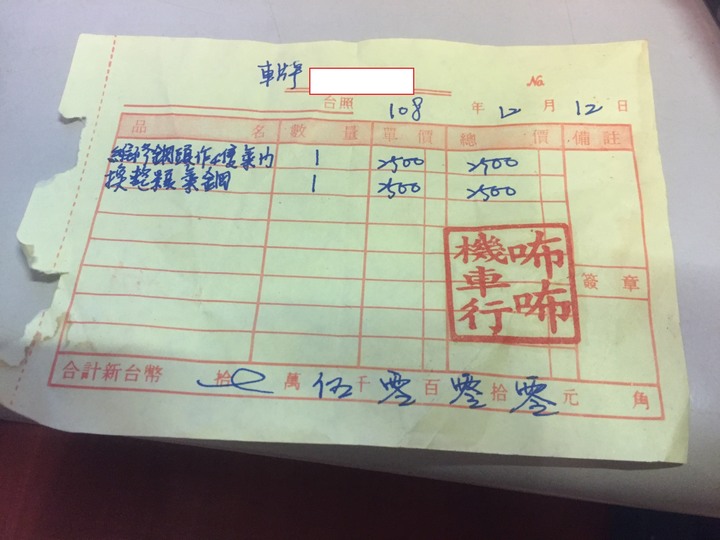 車牌
No.
台照 108 年 12 月 12 日
品 名 數 量 單 價 總 價 備 註
維修鋼頭 1 2500 2500
換整顆氣鋼 1 2500 2500
咘咘
機車行
簽 章
合計新台幣 拾 萬 伍 千 零 百 零 拾 零 元 角